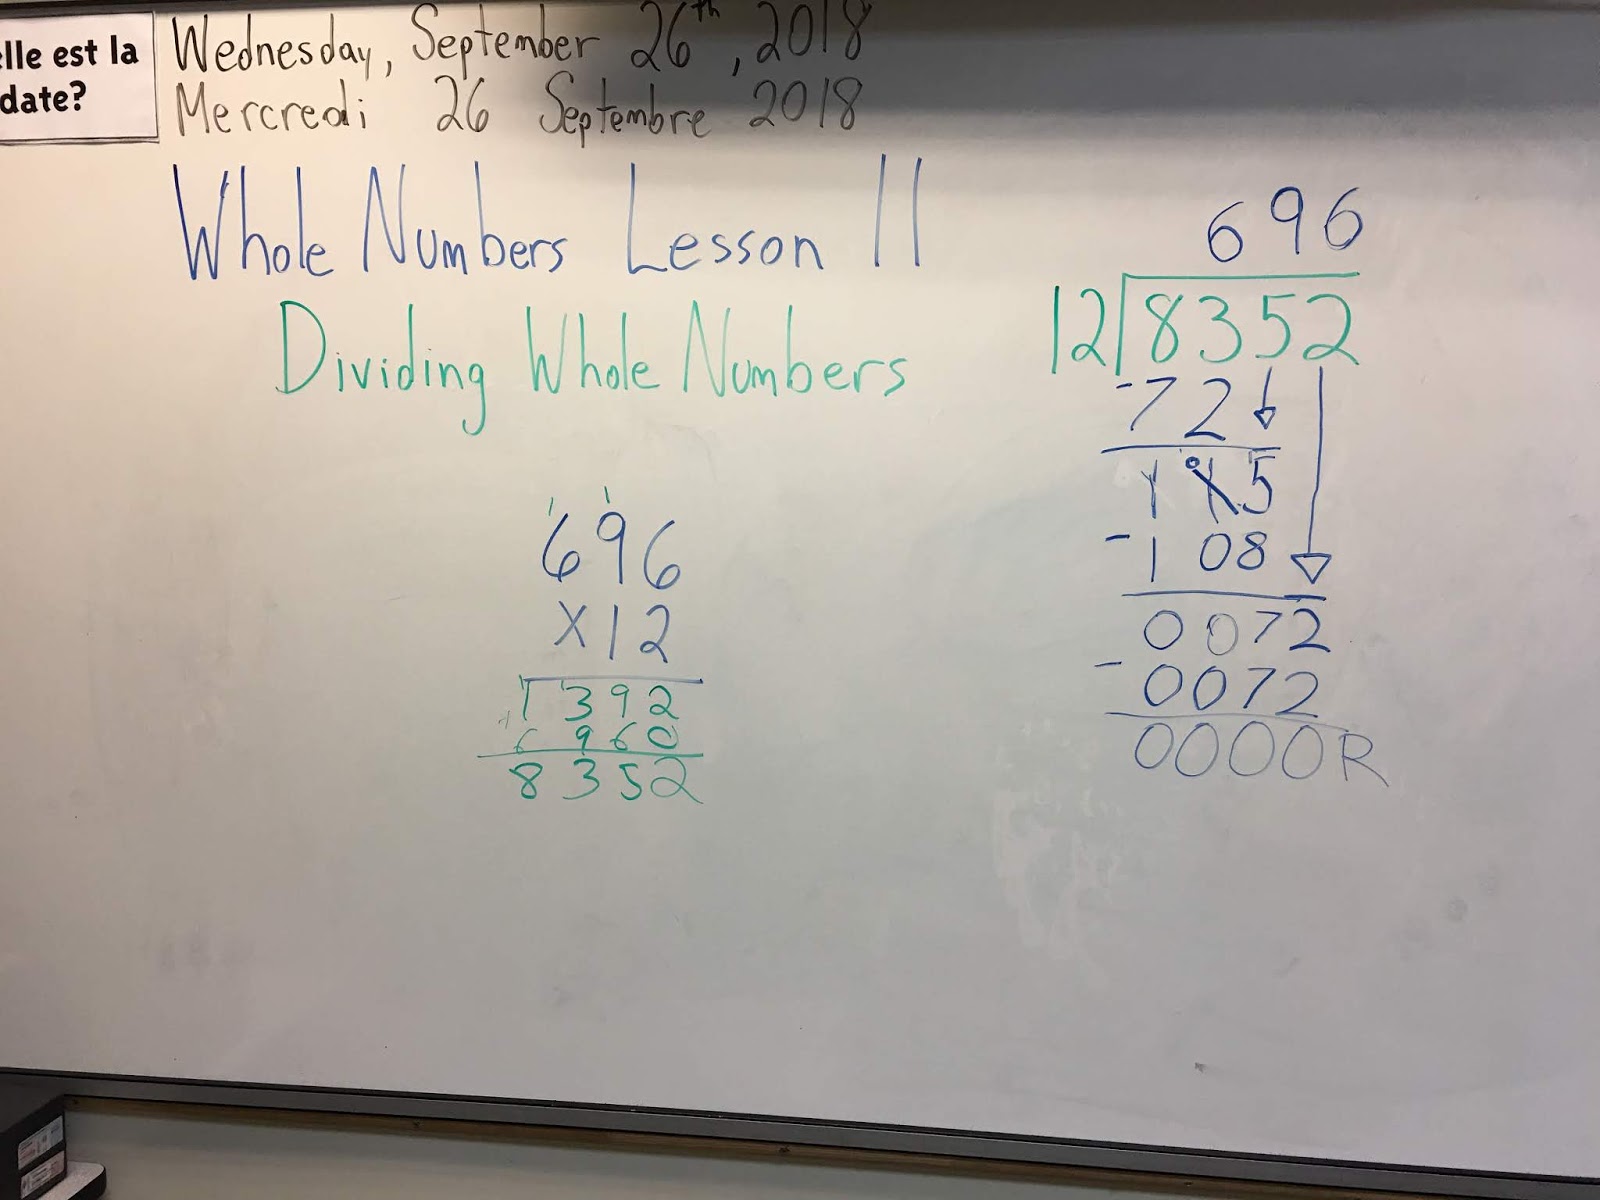 elle est la
date?
Wednesday, September 26th, 2018
Mercredi 26 Septembre 2018
Whole Numbers Lesson 11
Dividing Whole Numbers
1 1
696
X12
1 1
1392
+6960
8352
696
12 8352
-72
0 1
115
-108
0072
-0072
0000R